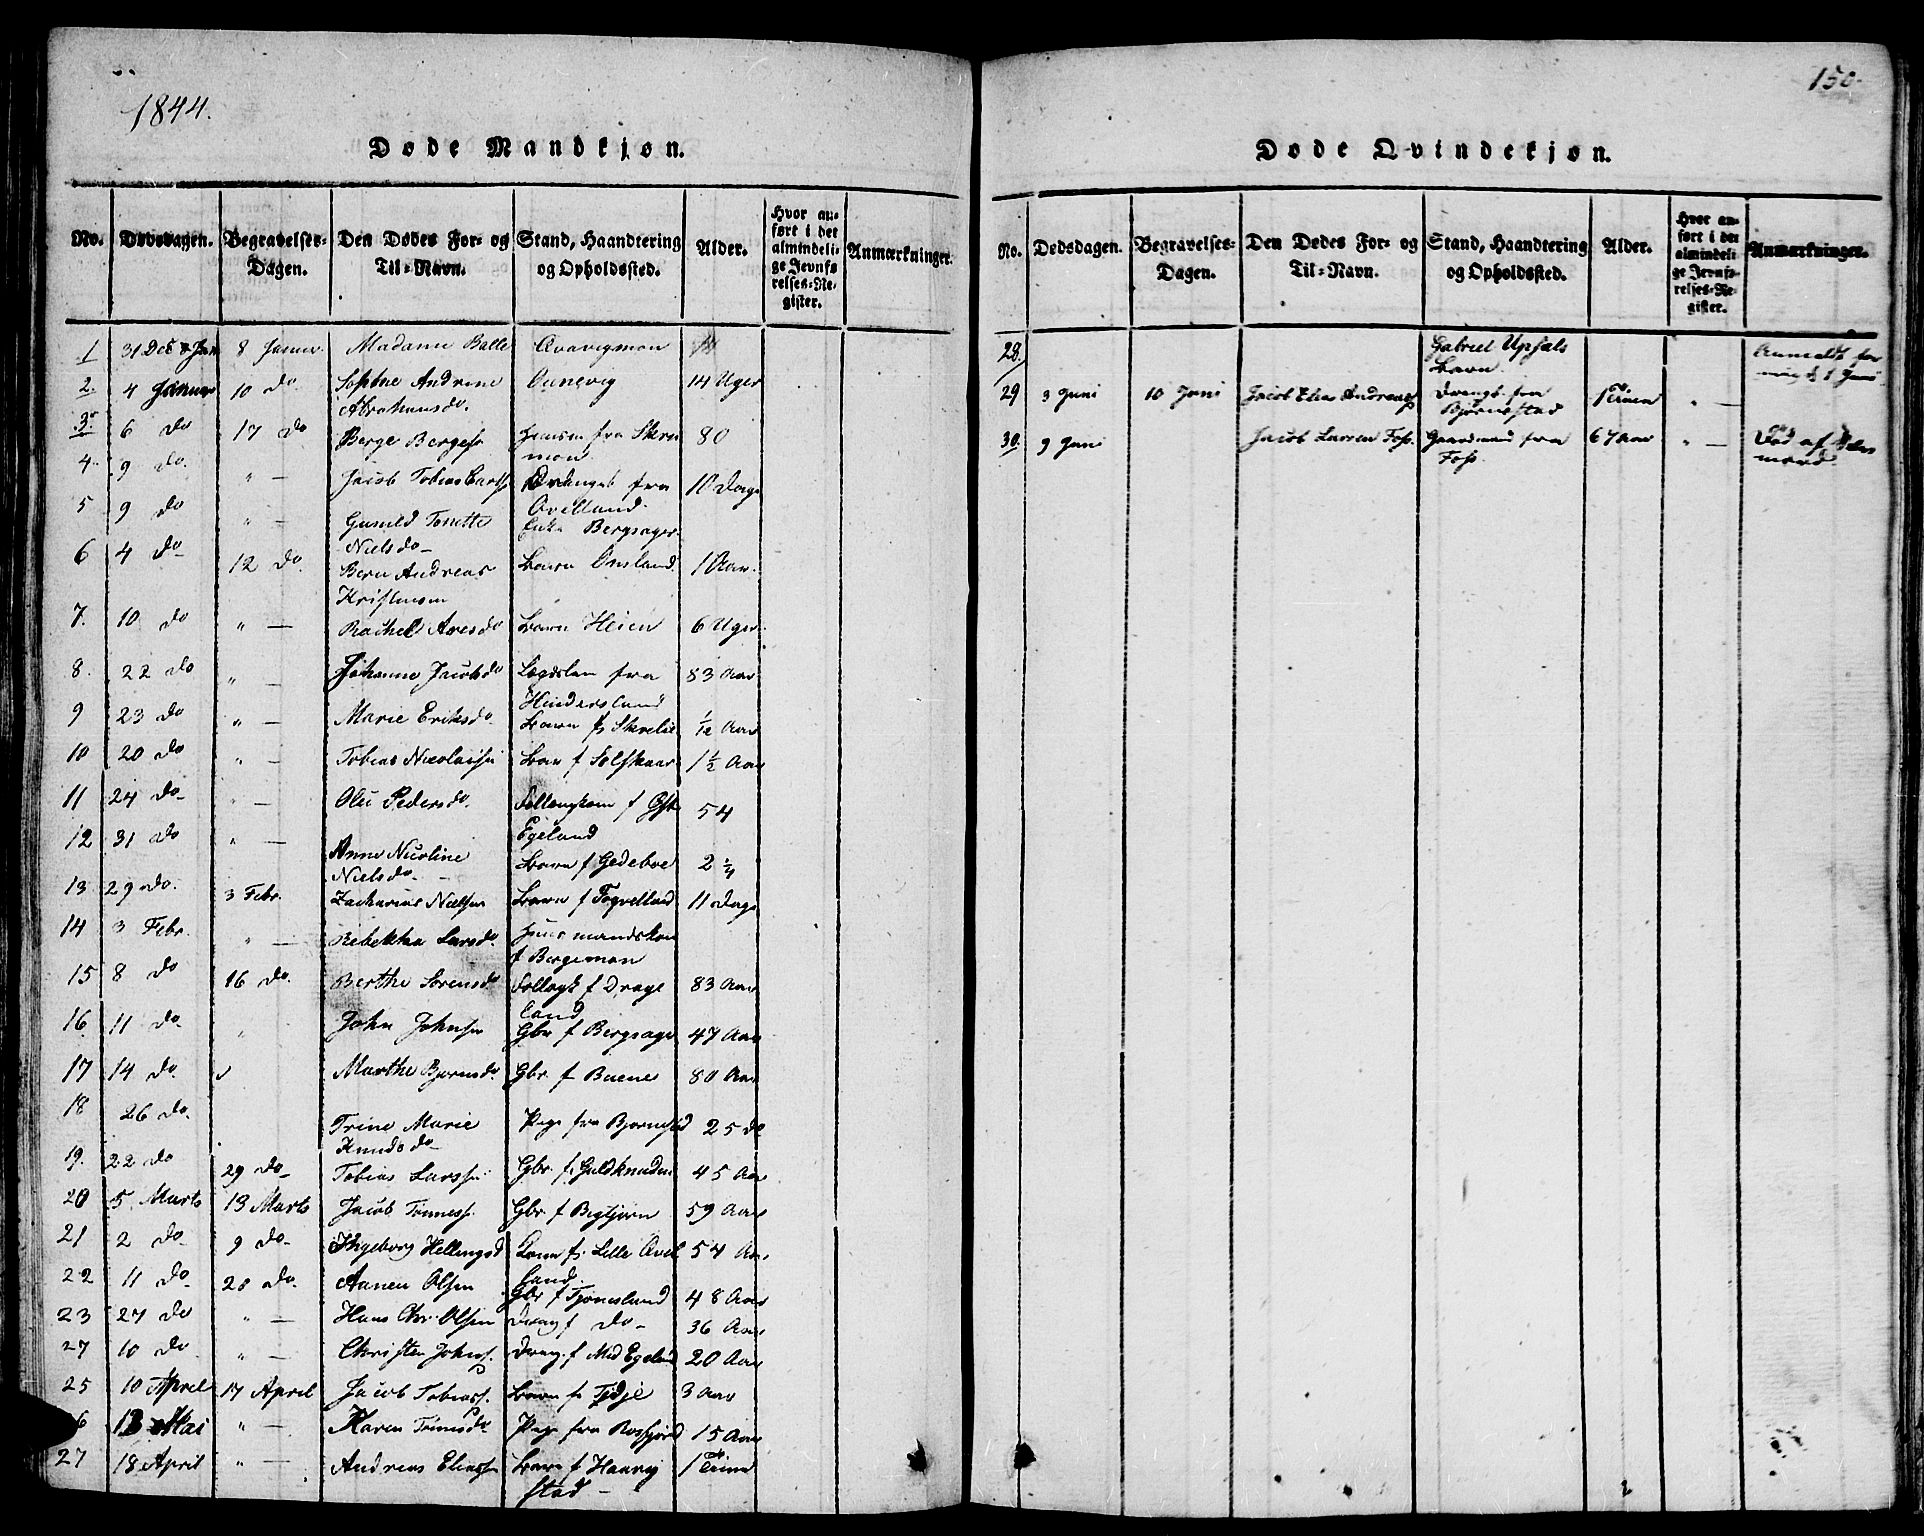 1844.
Døde Mandkjøn.
No. Dødsdagen. Begravelses-Dagen. Den Dødes For- og Til-Navn. Stand, Haandtering og Opholdssted. Alder. Hvor anført i det almindelige Jevnførelses-Register. Anmærkninger.
1 31 Dec 8 Januar Madame Balle
2. 4 Januar 10 do Andrine 14 Uger
Abrahamsdo.
3. 6 do 17 do Berge Berges 80
4. 9 do " — Jacob Tobias fra 10 Dage
Øvelland
5 9 do " — Gunild Tonette Bergsager
Nielsdo
6 4 do 12 do. Bern Andreas Barn Omland 1 Aar.
Kristensen
7. 10 do " — Rachel Aresdo Barn Heien 6 Uger
8. 22 do " — Johanne Jacobsdo Lægdslem fra 83 Aar
9 23 do " — Marie Eriksdo Barn f Skrelie 1/12 Aar
10 20 do " — Tobias Nicolaisen Barn f Selskaar 1 1/2 Aar
11 24 do " — Olu Pedersdo. f 54
Egeland
12 31 do " — Anne Nicoline Barn f Gedeboe 2 1/4
Nielsdo.
13 29 do. 3 Febr. Zacharias Nielsen Barn f 11 Dage
14 3 Febr. " — Rebekka Larsdo. Huusmandskone
f Bergemon
15 8 do 16 do. Berthe Sørensdo f Drage 83 Aar
land
16 11 do " John Johnsen Gbr f Bergsager 47 Aar
17 14 do. Marthe Bjørnsdo. Gbr. f Buene 80 Aar
18 26 do. Trine Marie Pige fra Bjørnestad 25 do
Knudsdo
19. 22 do 29 do Tobias Larssen Gbr f. Guldknuden 45 Aar
20 5 Marts 13 Marts Jacob Tønness. Gbr. f Bigbjørn 59 Aar
21 2 do 9 do Ingeborg Hellingsd Kone f. Lille Øvel 54 Aar
land
22 11 do 28 do. Aanen Olsen Gbr f Tjømsland 48 Aar
23 27 do " — Hans Chr. Olsen Dreng f do 36 Aar
27 10 do " — Christen Johns. Dreng f Med Egeland 20 Aar
25 10 April 17 April Jacob Tobiass. Barn fr Tidje 3 Aar
6 13 Mai " — Karen Tønnsdo Pige fra Rosfjord 15 Aar
27 18 April " — Andreas Eliassen Barn f Haarig
stad
150.
Døde Qvindekjøn.
No. Dødsdagen. Begravelses-Dagen. Den Dødes For- og Til-Navn. Stand, Haandtering og Opholdssted. Alder. Hvor anført i det almindelige Jevnførelses-Register. Anmærkninger.
28. Gabriel Upsals Anmeldt for
Barn
29 3 Juni 10 Juni Jacob Elias Andreas Dreng fra " —
Bjørnestad
30. 9 Juni Jacob Larsen Foss. Gaardmand fra 67 Aar " — Død af
Foss.